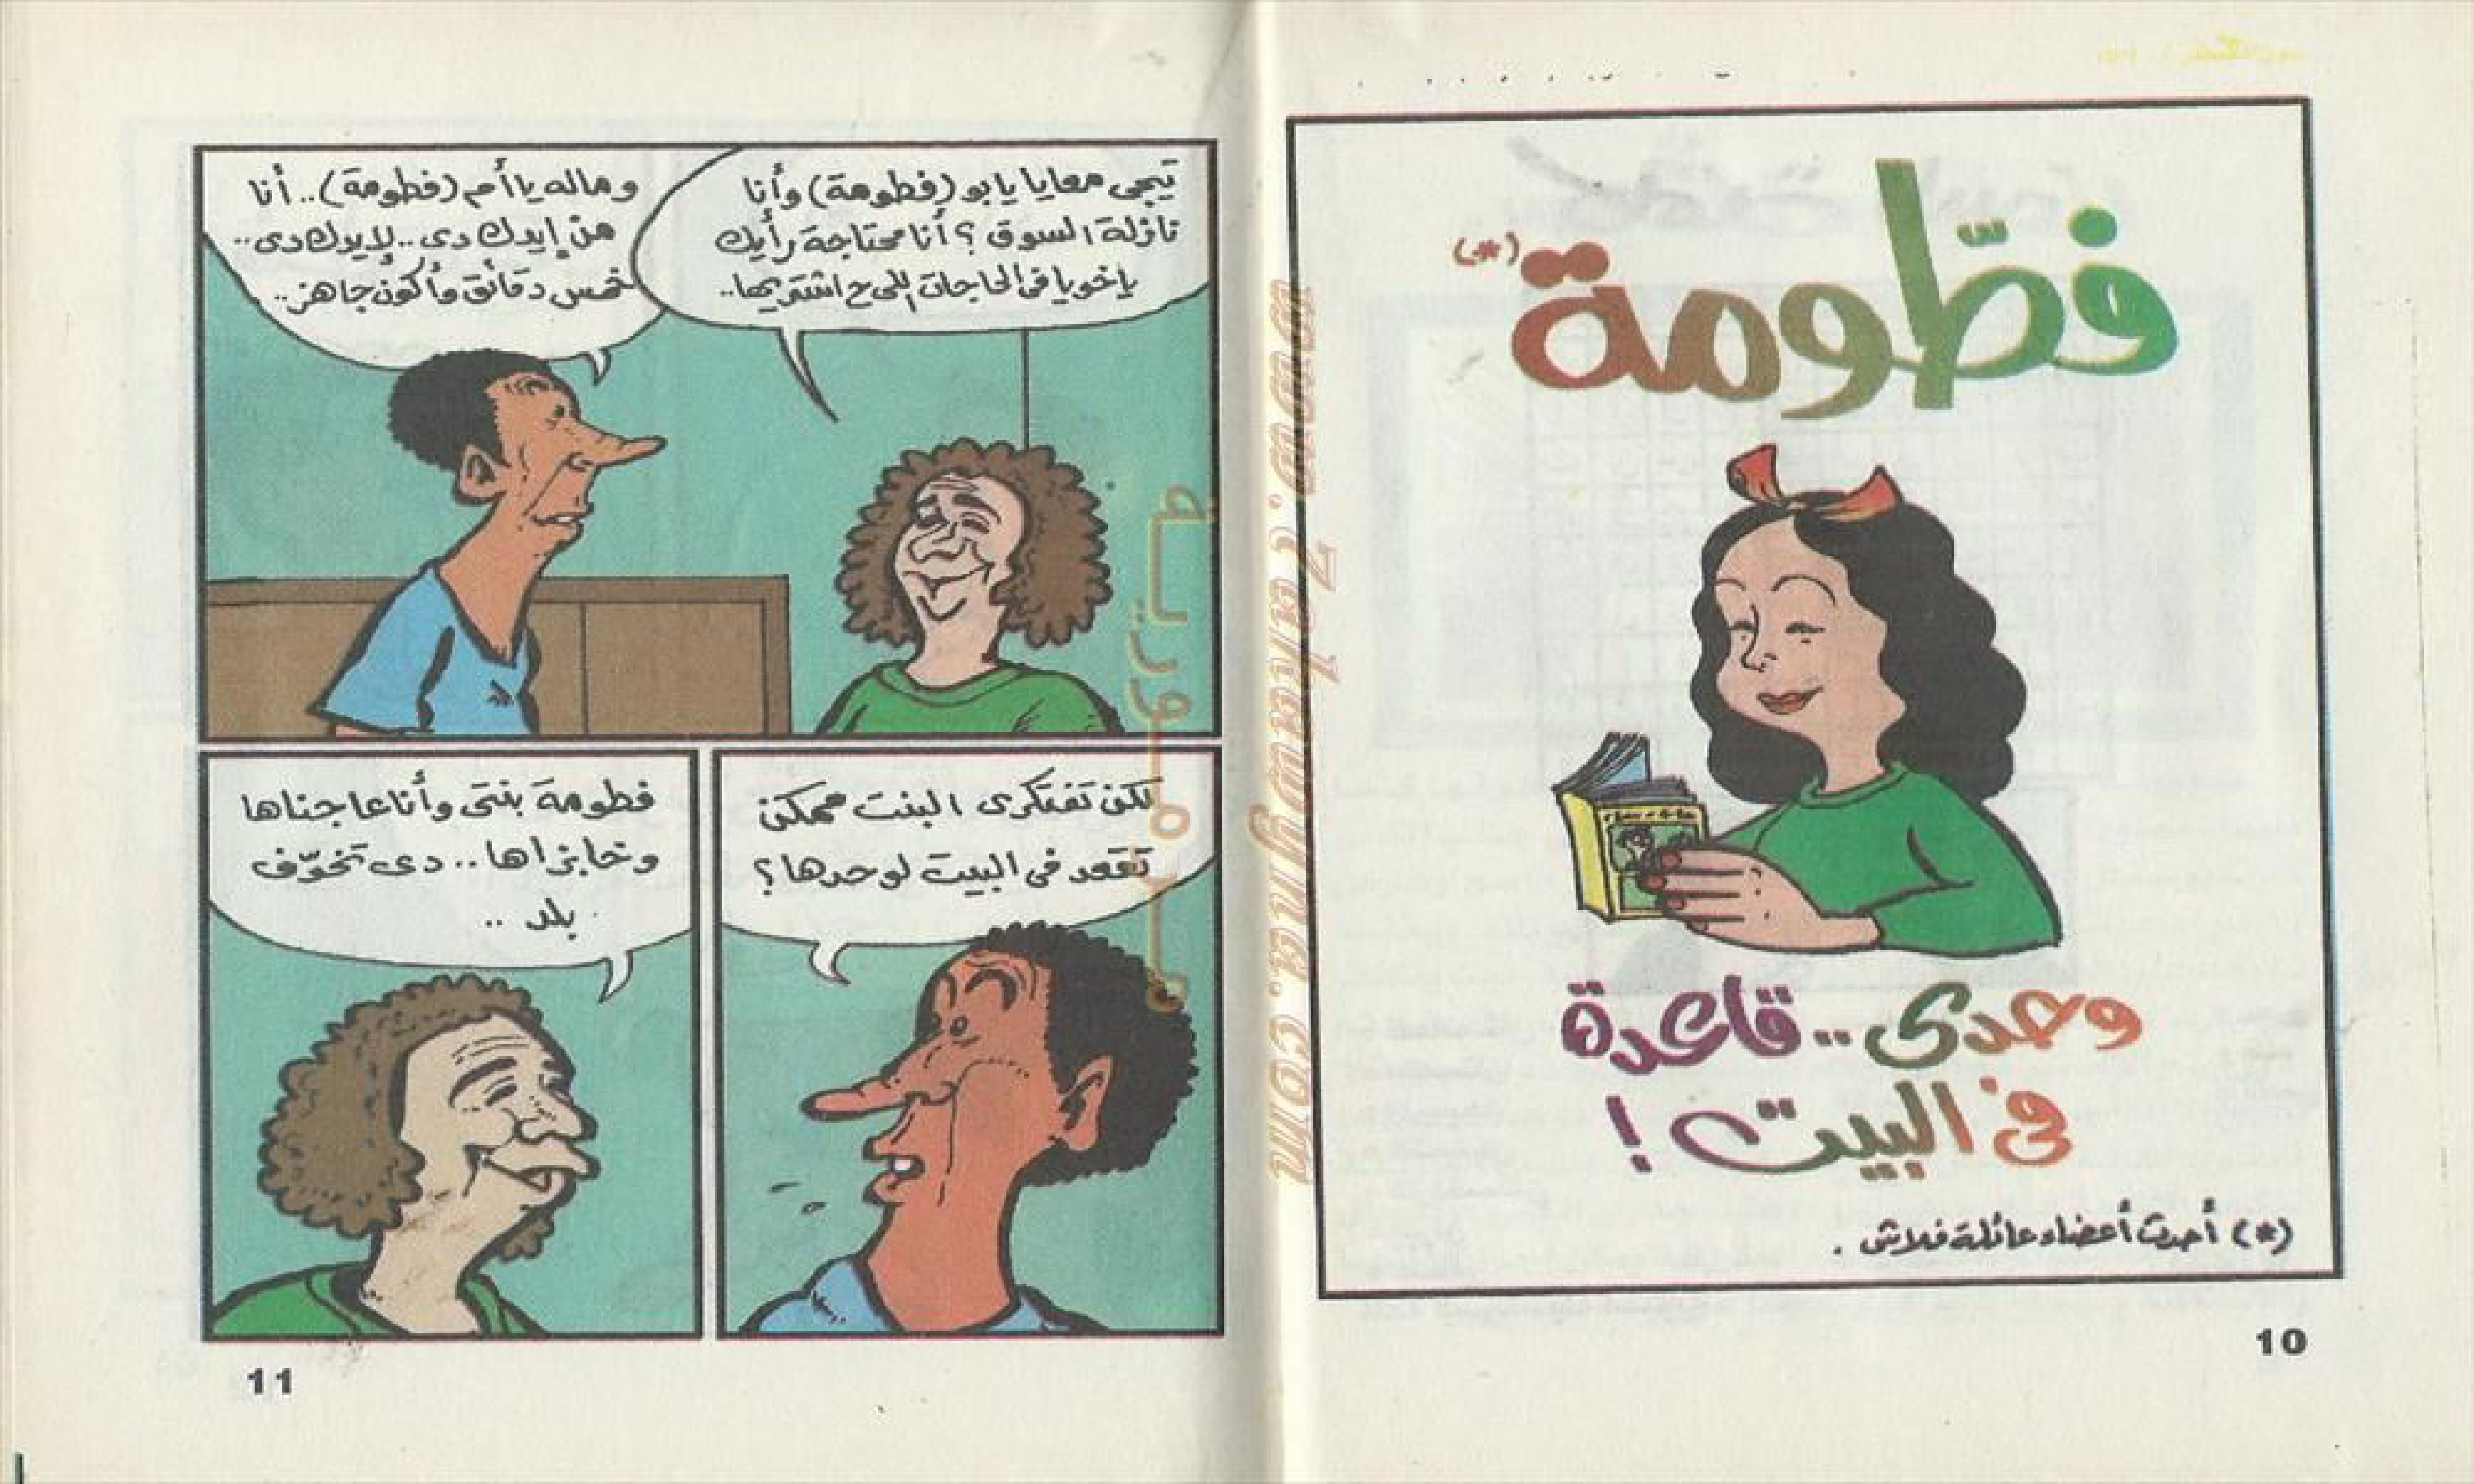 فطّومة (*)
وحدى.. قاعدة
فى البيت !
(*) أحدث أعضاء عائلة فلاش .
10
تيجى معايا يابو (فطومة) وأنا
نازلة السوق ؟ أنا محتاجة رأيك
ياخويا فى الحاجات اللى ح اشتريها..
وماله يا أم (فطومة).. أنا
من إيدك دى.. لإيدك دى..
خمس دقائق وأكون جاهز..
لكن تفتكرى البنت ممكن
تقعد فى البيت لوحدها ؟
فطومة بنتى وأنا عاجناها
وخابزاها.. دى تخوّف
بلد ..
11
www.arabcomics.net